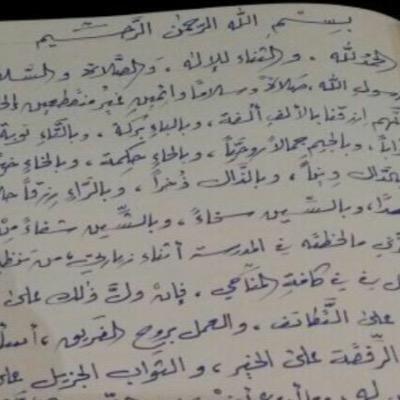 بسم الله الرحمن الرحيم
الحمد لله . والثناء للإله . والصَّلاة والسّلا
رسول الله . صلاةً وسلامًا دائمين غير منقطعين
اللهم ارزقنا بالألف ألفة ، وبالباء بركة . وبالتّاء توبة
وبالجيم جمالاً روحيّاً ، وبالحاء حكمة ، وبالخاء
وبالذّال ذُخراً ، وبالرّاء رزقاً
، وبالسّين سخاءً ، وبالشّين شفاءً
ما لاحظته في المدرسة أثناء زيارتي ، من
في كافة المناحي . فإن دلّ ذلك على
على التّكاتف ، والعمل بروح الفريق ،
على الخير ، والثواب الجزيل على